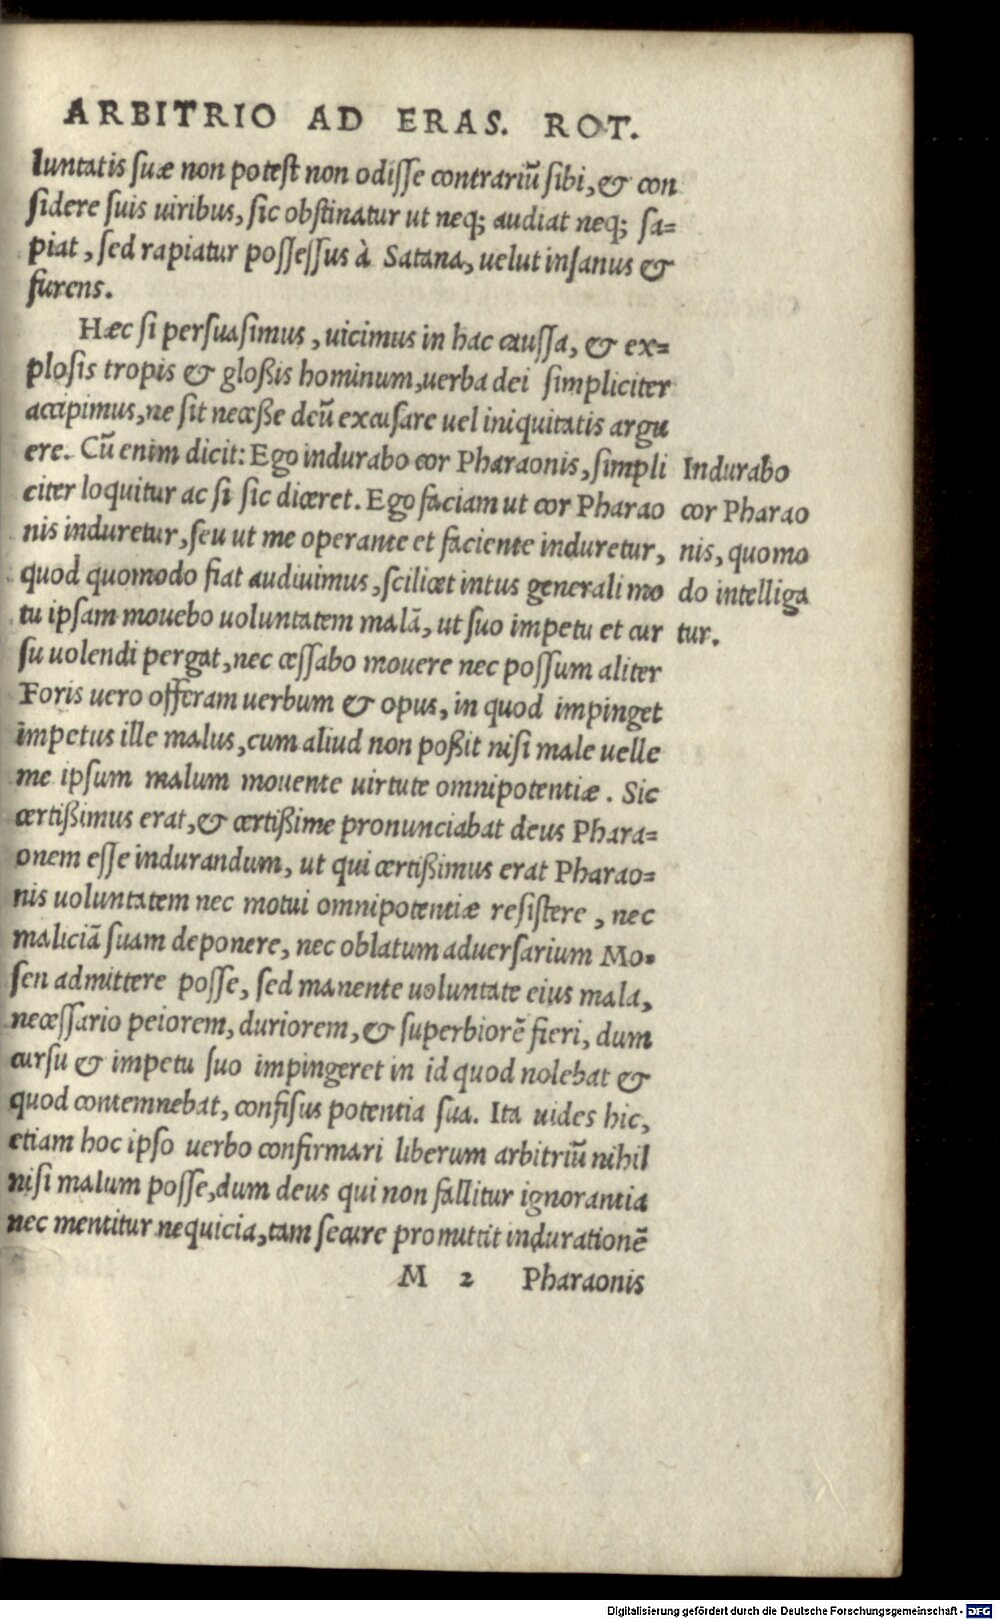 ARBITRIO AD ERAS. ROT.
luntatis suæ non potest non odisse contrariũ sibi, & con
sidere suis uiribus, sic obstinatur ut neq; audiat neq; sa=
piat, sed rapiatur possessus à Satana, uelut insanus &
furens.
Hæc si persuasimus, uicimus in hac caussa, & ex=
plosis tropis & gloßis hominum, uerba dei simpliciter
accipimus, ne sit neceße deũ excusare uel iniquitatis argu
ere. Cũ enim dicit: Ego indurabo cor Pharaonis, simpli
citer loquitur ac si sic diceret. Ego faciam ut cor Pharao
nis induretur, seu ut me operante et faciente induretur,
quod quomodo fiat audiuimus, scilicet intus generali mo
tu ipsam mouebo uoluntatem malã, ut suo impetu et cur
su uolendi pergat, nec cessabo mouere nec possum aliter
Foris uero offeram uerbum & opus, in quod impinget
impetus ille malus, cum aliud non poßit nisi male uelle
me ipsum malum mouente uirtute omnipotentiæ. Sic
certißimus erat, & certißime pronunciabat deus Phara=
onem esse indurandum, ut qui certißimus erat Pharao=
nis uoluntatem nec motui omnipotentiæ resistere, nec
maliciã suam deponere, nec oblatum aduersarium Mo=
sen admittere posse, sed manente uoluntate eius mala,
necessario peiorem, duriorem, & superbiorẽ fieri, dum
cursu & impetu suo impingeret in id quod nolebat &
quod contemnebat, confisus potentia sua. Ita uides hic,
etiam hoc ipso uerbo confirmari liberum arbitriũ nihil
nisi malum posse, dum deus qui non fallitur ignorantia
nec mentitur nequicia, tam secure promittit indurationẽ
M 2 Pharaonis
Indurabo
cor Pharao
nis, quomo
do intelliga
tur.
Digitalisierung gefördert durch die Deutsche Forschungsgemeinschaft - DFG